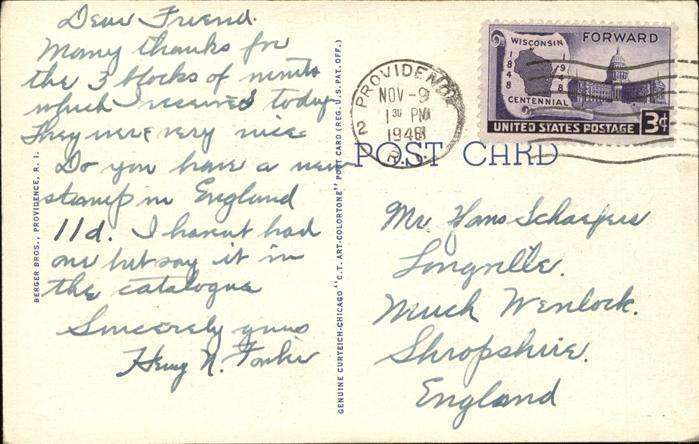 Dear Friend.
Many thanks for
the 3 blocks of mints
which I received today
They were very nice
Do you have a new
stamp in England
11d. I havent had
one but say it in
the catalogue
Sincerely yours
Henry N.
BERGER BROS., PROVIDENCE, R. I.
GENUINE CURTEICH-CHICAGO "C.T. ART-COLORTONE" POST CARD (REG. U.S. PAT. OFF.)
PROVIDENCE
2
NOV -9
1 30 PM
1948
R. I.
WISCONSIN
FORWARD
1848
1948
CENTENNIAL
UNITED STATES POSTAGE 3¢
POST CARD
Mr. Hans Schaefers
Longville.
Much Wenlock.
Shropshire.
England